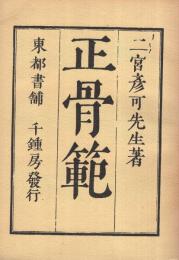 二宮彦可先生著
正骨範
東都書舗 千鍾房發行